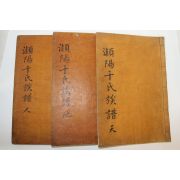 潁陽千氏族譜 天
潁陽千氏族譜 地
潁陽千氏族譜 人